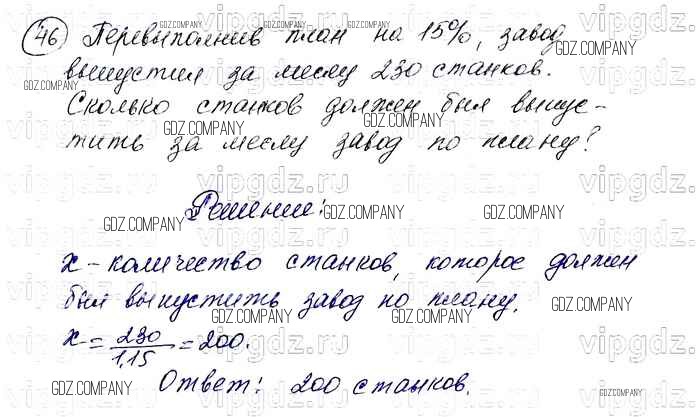 46 Перевыполнив план на 15%, завод
выпустил за месяц 230 станков.
Сколько станков должен был выпус-
тить за месяц завод по плану?
Решение:
x - количество станков, которое должен
был выпустить завод по плану.
x = 230/1,15 = 200.
Ответ: 200 станков.
GDZ.COMPANY
vipgdz.ru